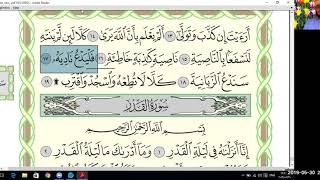 أَرَءَيْتَ إِن كَذَّبَ وَتَوَلَّىٰٓ ١٣ أَلَمْ يَعْلَم بِأَنَّ ٱللَّهَ يَرَىٰ ١٤ كَلَّا لَئِن لَّمْ يَنتَهِ
لَنَسْفَعًۢا بِٱلنَّاصِيَةِ ١٥ نَاصِيَةٍ كَٰذِبَةٍ خَاطِئَةٍ ١٦ فَلْيَدْعُ نَادِيَهُۥ ١٧
سَنَدْعُ ٱلزَّبَانِيَةَ ١٨ كَلَّا لَا تُطِعْهُ وَٱسْجُدْ وَٱقْتَرِب ۩ ١٩
سُورَةُ ٱلْقَدْرِ
بِسْمِ ٱللَّهِ ٱلرَّحْمَٰنِ ٱلرَّحِيمِ
إِنَّآ أَنزَلْنَٰهُ فِى لَيْلَةِ ٱلْقَدْرِ ١ وَمَآ أَدْرَىٰكَ مَا لَيْلَةُ ٱلْقَدْرِ ٢
2019-05-30